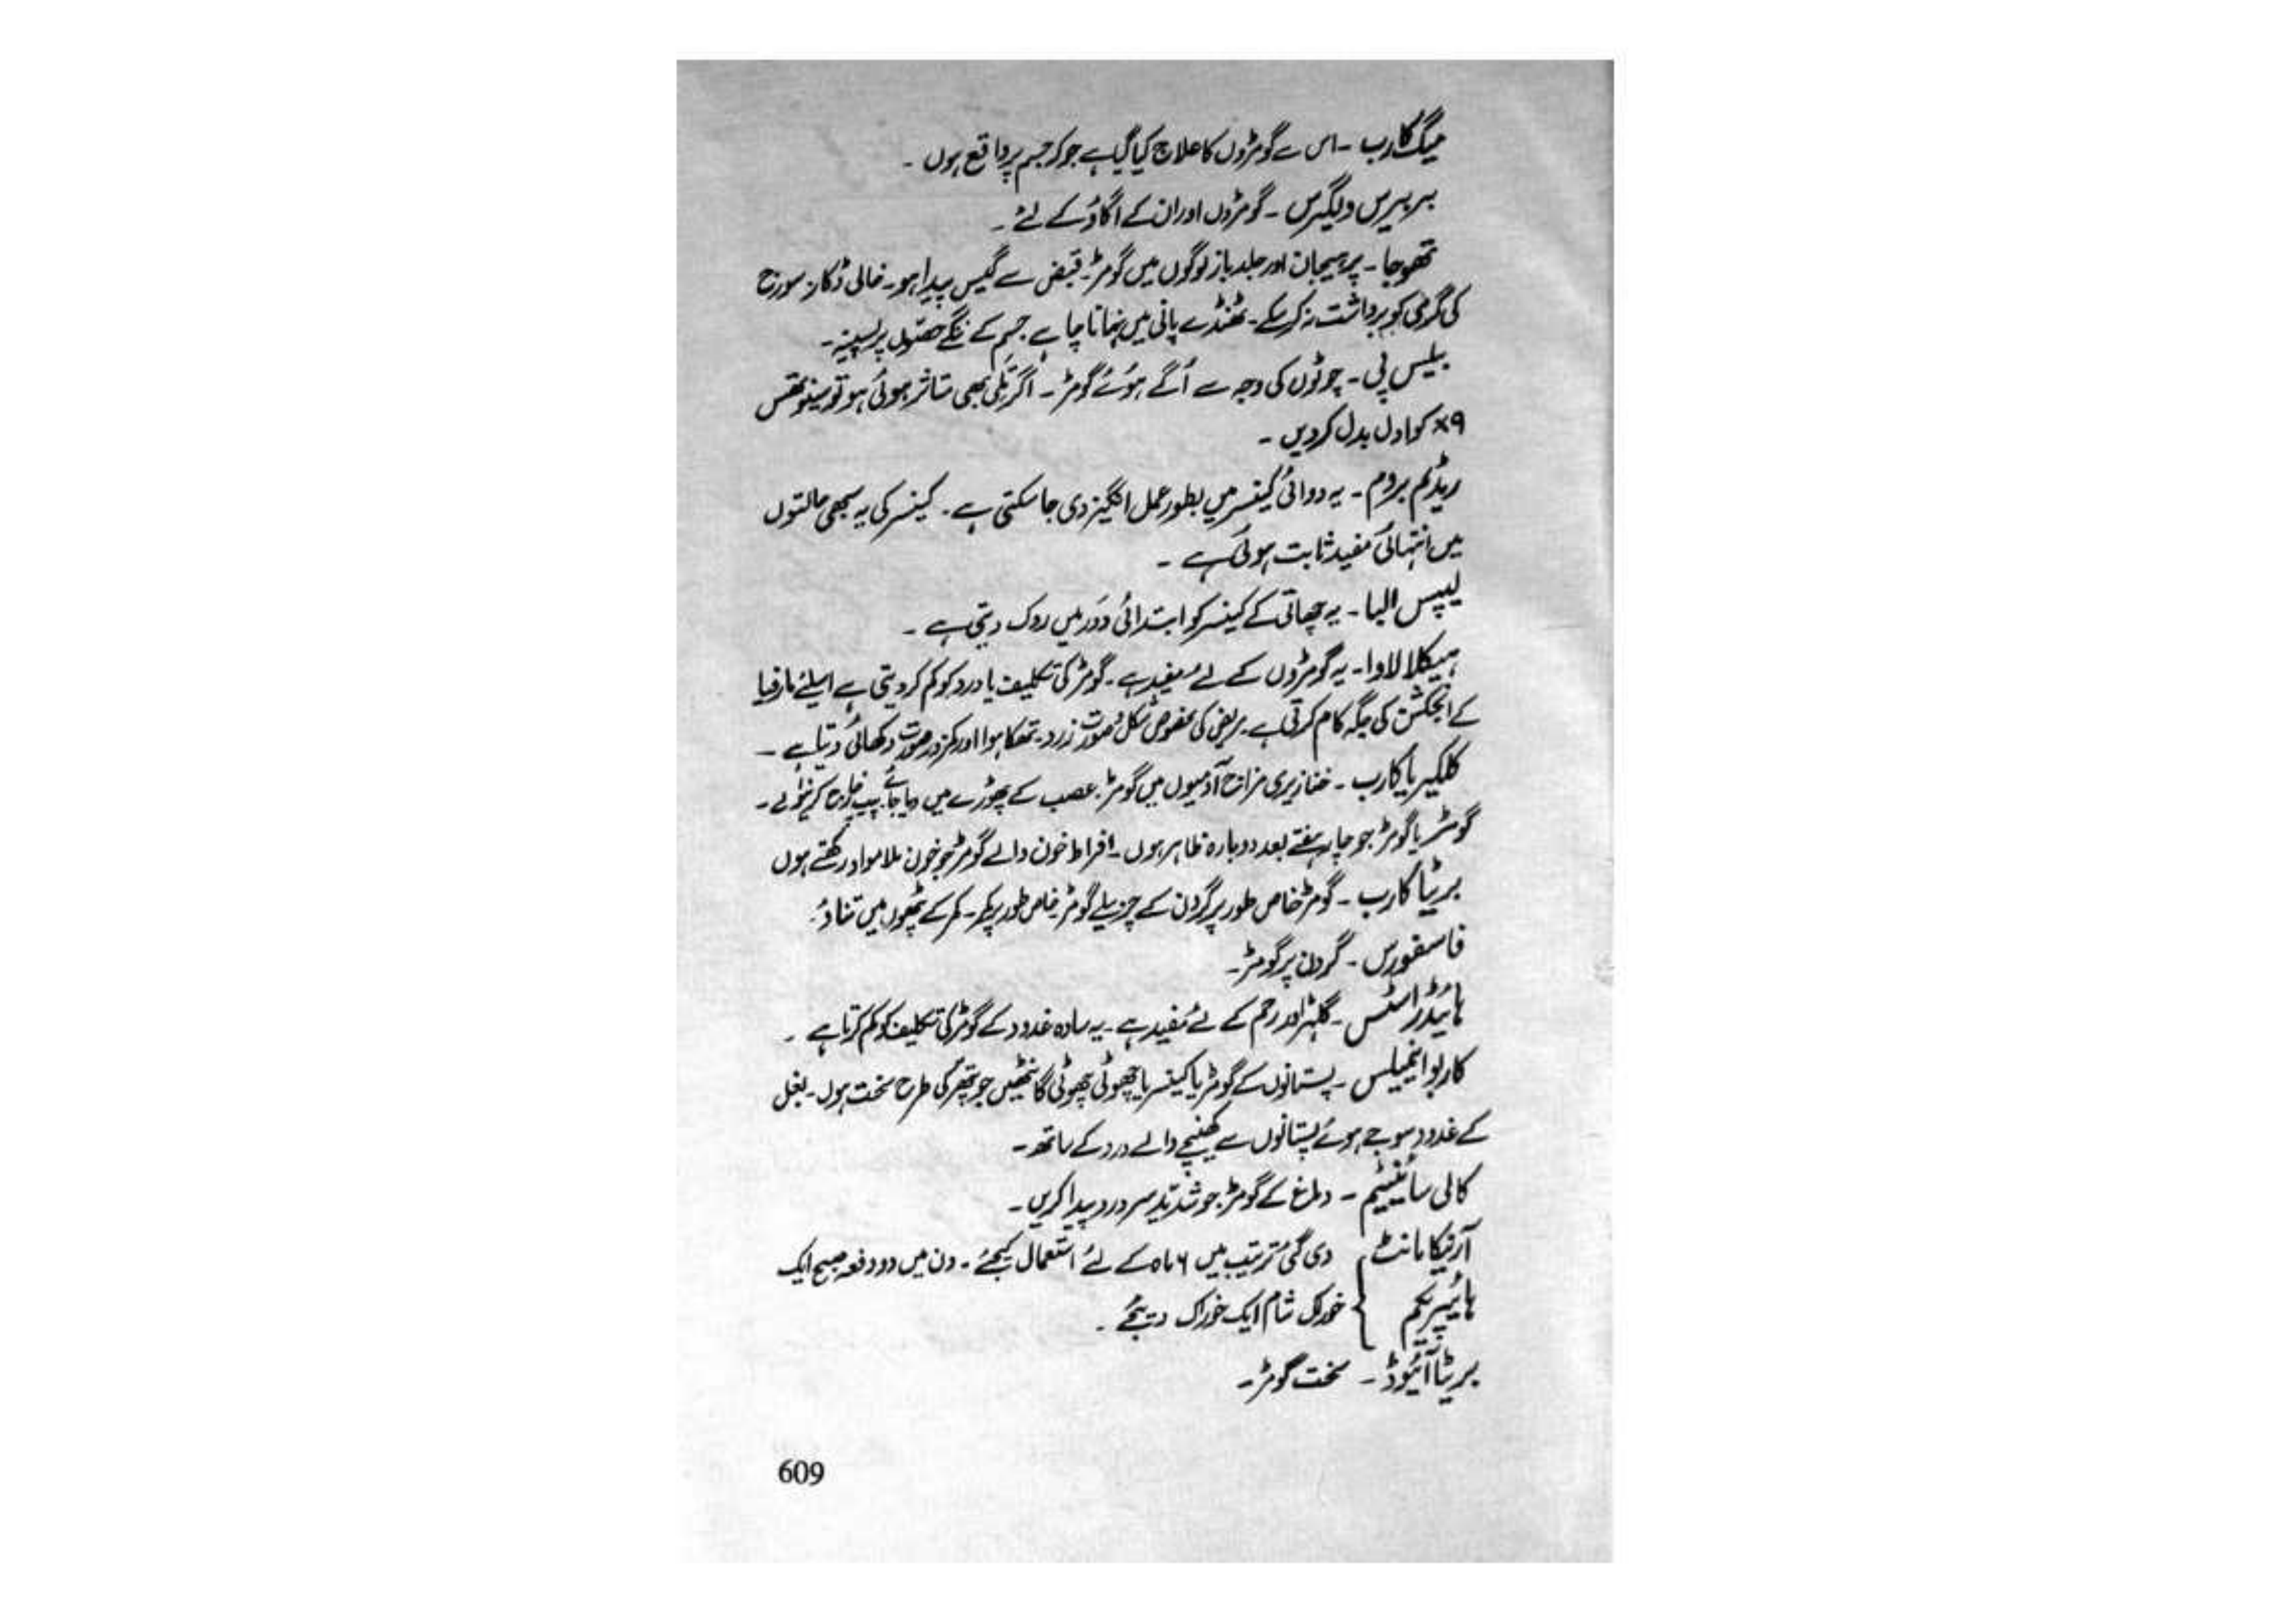 میگ کارب - اس سے گومڑوں کا علاج کیا گیا ہے جو کہ جسم پر واقع ہوں ۔
بربیرس ولگیرس - گومڑوں اور ان کے اگاؤ کے لئے ۔
تھوجا - پر ہیجان اور جلد باز لوگوں میں گومڑ ۔ قبض سے گیس پیدا ہو ۔ خالی ڈکار ۔ سورج
کی گرمی کو برداشت نہ کر سکے ۔ ٹھنڈے پانی میں نہانا چاہے جسم کے ننگے حصّوں پر پسینہ ۔
بیلس پی - چوٹوں کی وجہ سے اُگے ہوئے گومڑ ۔ اگر تلی بھی متاثر ہوئی ہو تو سینوتھس
x۹ کو ادل بدل کر دیں ۔
ریڈیم بروم - یہ دوائی کینسر میں بطور عمل انگیز دی جا سکتی ہے ۔ کینسر کی یہ سبھی حالتوں
میں انتہائی مفید ثابت ہوئی ہے ۔
لیپس البا - یہ چھاتی کے کینسر کو ابتدائی دَور میں روک دیتی ہے ۔
ہیکلا لاوا - یہ گومڑوں کے لئے مفید ہے ۔ گومڑ کی تکلیف یا درد کو کم کر دیتی ہے اسلئے مارفیا
کے انجکشن کی جگہ کام کرتی ہے ۔ مریض کی مخصوص شکل و صورت زرد ۔ تھکا ہوا اور کمزور صورت دکھائی دیتا ہے ۔
کلکیریا کارب - خنازیری مزاج آدمیوں میں گومڑ ۔ عصب کے پھوڑے میں دیا جائے پیپ خارج کرنیوالے ۔
گومڑ یا گومڑ جو چار ہفتے بعد دوبارہ ظاہر ہوں ۔ افراط خون والے گومڑ جو خون ملا مواد رکھتے ہوں
بریٹا کارب - گومڑ خاص طور پر گردن کے چربیلے گومڑ خاص طور پر کمر ۔ کمر کے پٹھوں میں تناؤ ۔
فاسفورس - گردن پر گومڑ ۔
ہائیڈراسٹس - گلہڑ اور رحم کے لئے مفید ہے ۔ یہ سادہ غدود کے گومڑ کی تکلیف کو کم کرتا ہے ۔
کاربو اینیمیلس - پستانوں کے گومڑ یا کینسر یا چھوٹی چھوٹی گانٹھیں جو پتھر کی طرح سخت ہوں ۔ بغل
کے غدود سوجے ہوئے پستانوں سے کھینچے والے درد کے ساتھ ۔
کالی سائینیٹم - دماغ کے گومڑ جو شدید سر درد پیدا کریں ۔
آرنیکا مانٹ } دی گئی ترتیب میں ۶ ماہ کے لئے استعمال کیجئے ۔ دن میں دو دفعہ صبح ایک
ہائیپریکم } خوراک شام ایک خوراک دیجئے ۔
بریٹا آئیوڈ - سخت گومڑ ۔
609